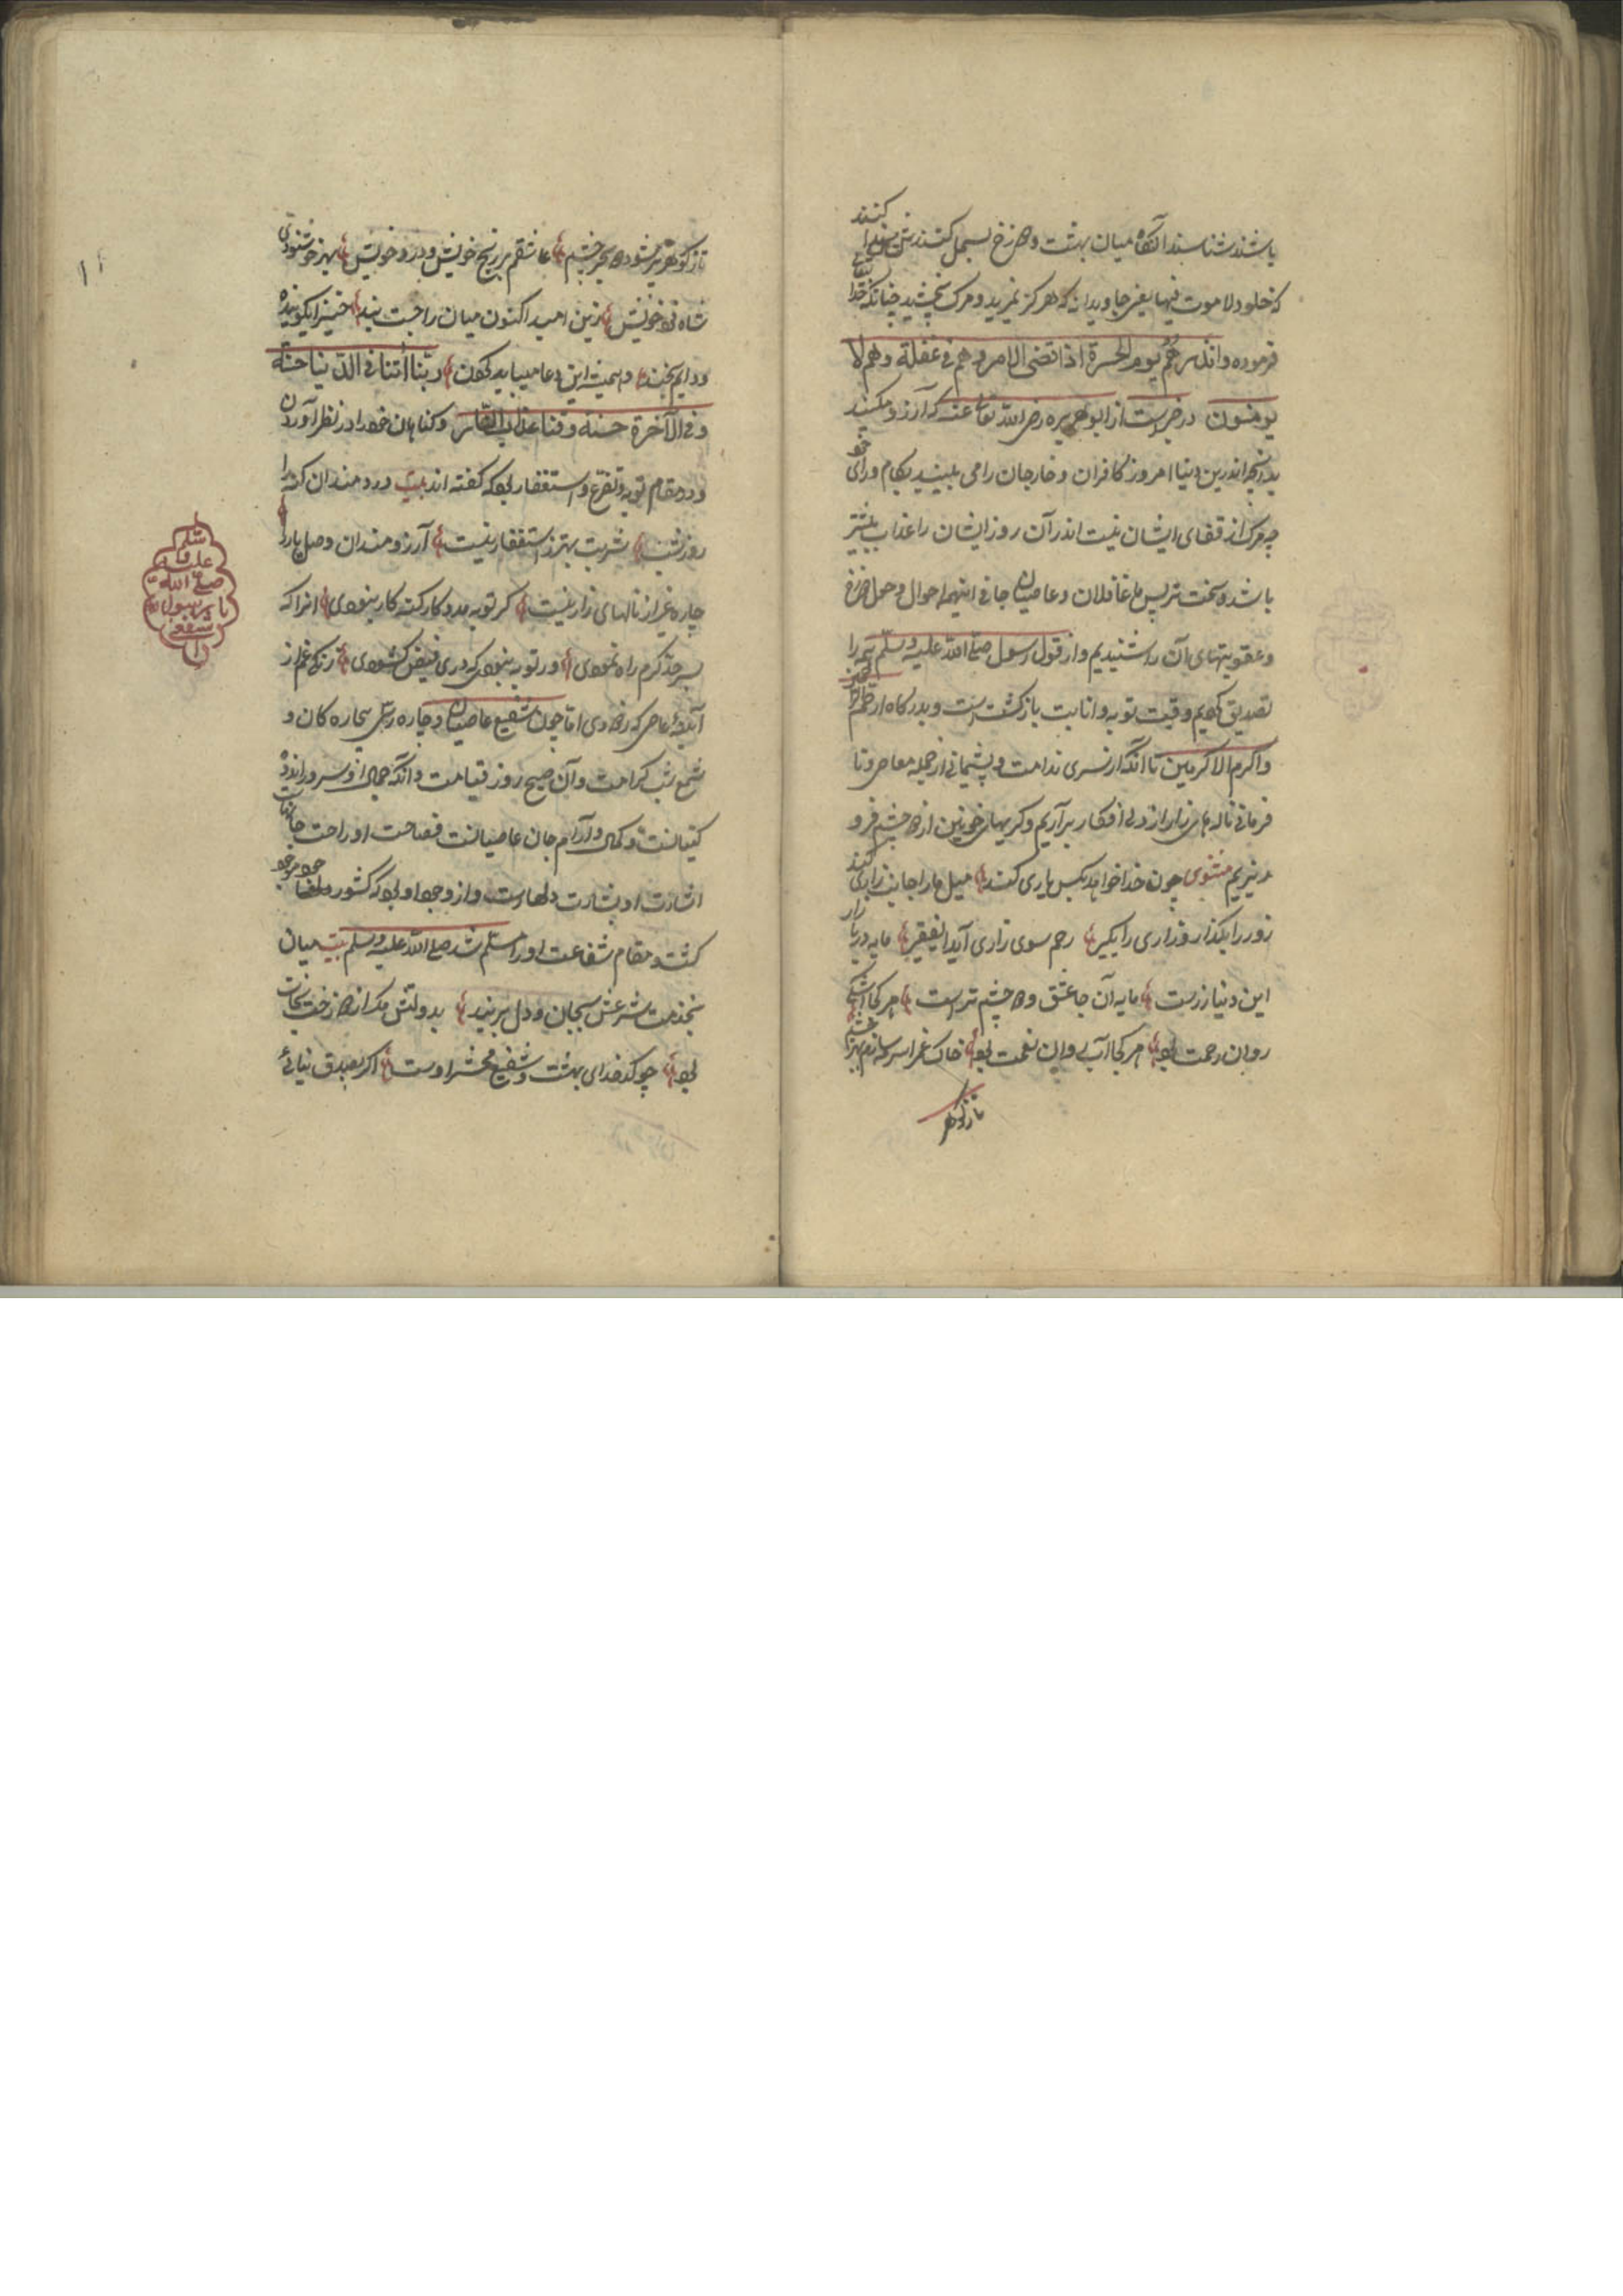 باشند شناسند آنگاه میان بهشت و دوزخ بسمل کنند
کنند
که خلود لا موت فیها یعنی جاویدانه که هرگز نمرید و مرگ نچشید چنانکه خدا
فرموده وانذرهم یوم الحسرة اذ قضی الامر وهم فی غفلة وهم لا
یومنون در خبرست از ابو هریره رضی الله تعالی عنه که آرزو مکنید
بدانچه اندرین دنیا امروز کافران و خارجان را می بینید بکام و رای
چه مرگ از قفای ایشان نیست اندر آن روز ایشان را عذاب بیشتر
باشد و سخت تر پس ما غافلان و عاصیان جافی اینهمه احوال دوزخ
و عقوبتهای آن را شنیدیم و از قول رسول صلی الله علیه وسلم همه را
تصدیق کردیم وقت توبه و انابت بازگشت است و بدرگاه ارحم
واکرم الاکرمین تا آنکه از سری ندامت و پشیمانی از جمله معاصی و نا
فرمانی ناله های زار از دل افکار برآریم و گریهای خونین از دو چشم فرو
ریزیم مثنوی چون خدا خواهد بکس یاری کند میل ما را جانب زاری کند
زور را بگذار و زاری را بگیر رحم سوی زاری آید ای فقیر مایه در بازار
این دنیا زرست مایه آن جا عشق و دو چشم ترست هر کجا اشکی
روان رحمت بود هر کجا آب روان نعمت بود خاک غم را سرمه سازم بهر چشم
تا ز گوهر
تا ز گوهر پر شود دو بحر چشم عاشقم بر رنج خویش و درد خویش بهر خوشنودی
شاه فرد خویش زین امید اکنون میان را چست بند
و دایم بخند و همیشه این دعا میباید کردن ربنا آتنا فی الدنیا حسنة
وفی الآخرة حسنة وقنا عذاب النار و گناهان خود را در نظر آوردن
و در مقام توبه و تضرع و استغفار بود که گفته اند بیت دردمندان گنه را
روز و شب شربت بهتر ز استغفار نیست آرزومندان وصل یار را
چاره غیر از نالهای زار نیست گر توبه مددکار گنه کار نبودی او را که
بسرحد کرم راه نمودی ور توبه نبودی که در فیض گشودی زنگ غم از
آینهٔ عاصی که زدودی اما چون شفیع عاصیان و چاره رس بیچاره کان و
شمع شب کرامت و آن صبح روز قیامت
و آرام جان عاصیانست فصاحت او راحت جان
اشارت او بشارت دلهاست و از وجود او بود که کشور
گشت و مقام شفاعت او را مسلم شد صلی الله علیه وسلم بیت میان
بخدمت شرعش بجان و دل بربند بدولتش مگر از دوزخت نجات
بود چو کدخدای بهشت و شفیع محشر اوست اگر بصدق نیائی
شفاعت
یا رسول الله
صلی الله
علیه و
سلم